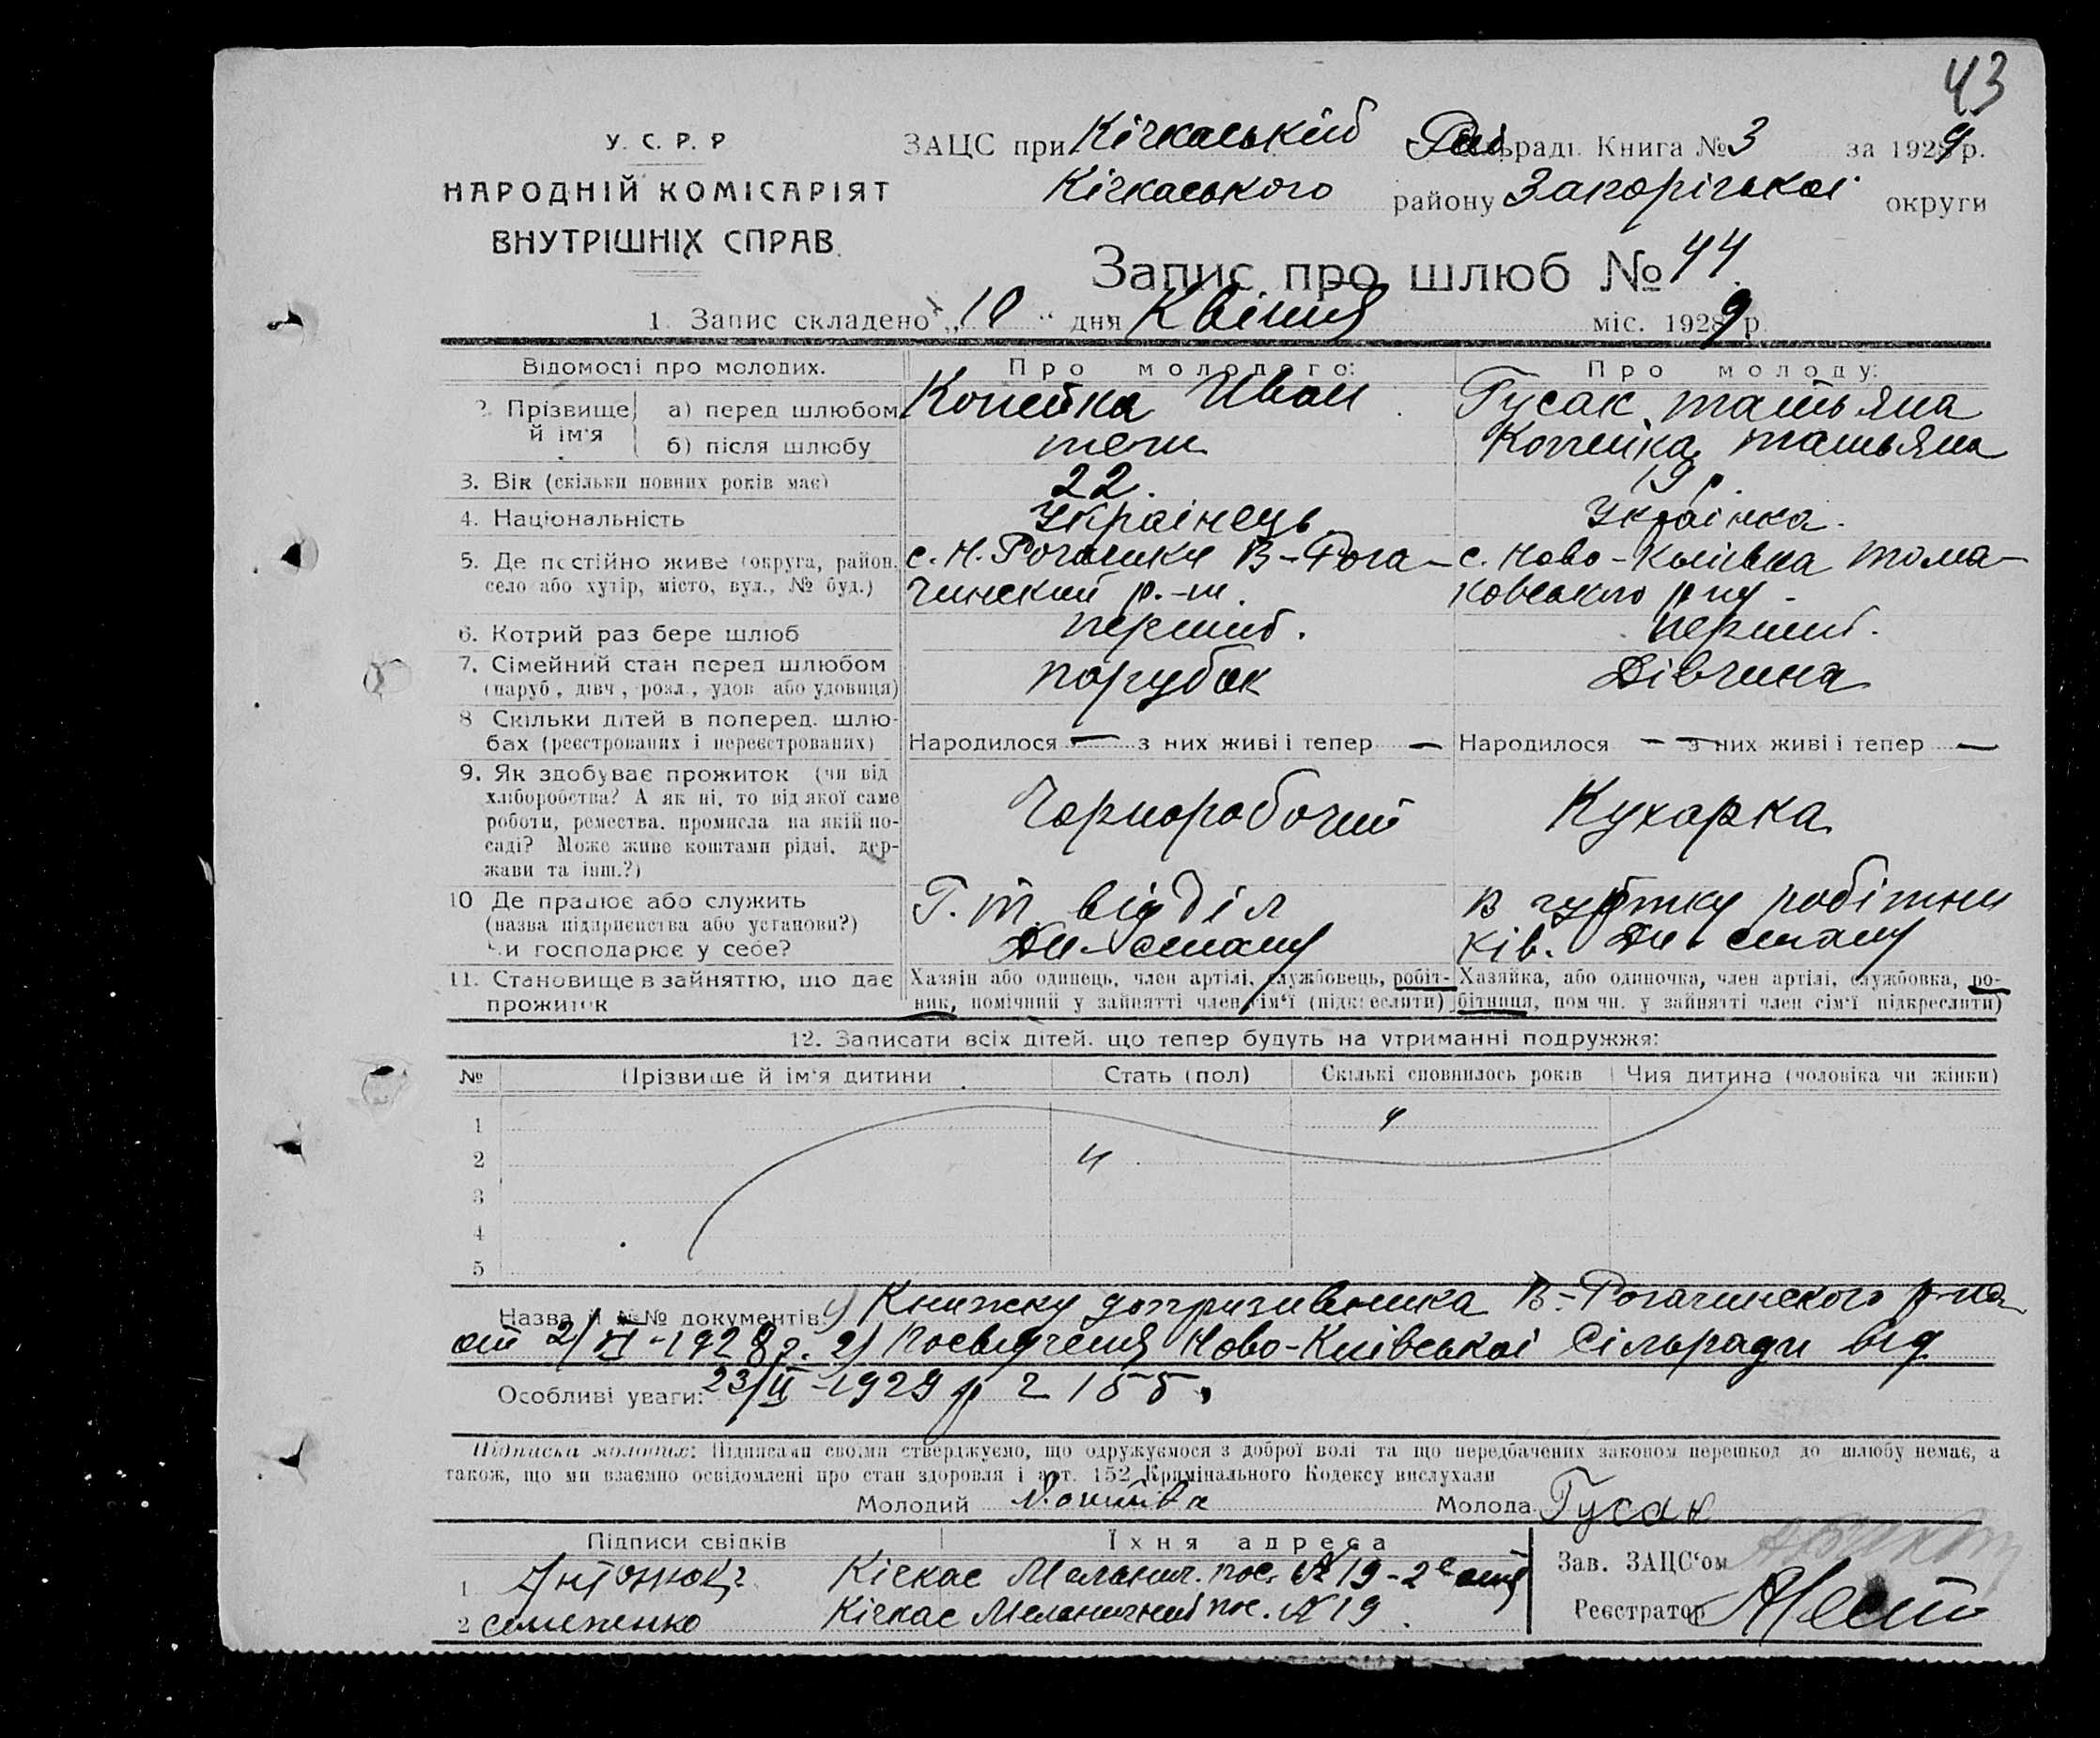 43
У. С. Р. Р
НАРОДНІЙ КОМІСАРІЯТ
ВНУТРІШНІХ СПРАВ.
ЗАЦС при Кічкаській Рай раді. Книга № 3 за 1929 р.
Кічкаського району Запорізької округи
Запис про шлюб № 44
1. Запис складено „10“ дня Квітня міс. 1929 р
Відомості про молодих. Про молодого: Про молоду:
2. Прізвище й ім'я а) перед шлюбом Копейка Иван Гусак татьяна
б) після шлюбу теж Копейка татьяна
3. Вік (скільки повних років має) 22. 19 р.
4. Національність Українець Українка.
5. Де постійно живе (округа, район, с. Н. Рогачики В-Рога- с. Ново-Київка тома-
село або хутір, місто, вул., № буд.) чинский р.-н. ковського р ну
6. Котрий раз бере шлюб перший. перший.
7. Сімейний стан перед шлюбом порубок Дівчина
(паруб, дівч, розл., удов або удовиця)
8 Скільки дітей в поперед. шлю-
бах (реєстрованих і нереєстрованих) Народилося — з них живі і тепер — Народилося — з них живі і тепер —
9. Як здобуває прожиток (чи від
хліборобства? А як ні, то від якої саме
роботи, ремества, промисла на якій по- Чорноробочий Кухарка
саді? Може живе коштами рідні, дер-
жави та інш.?)
10 Де працює або служить Г. т. відділ в гуртку робітни
(назва підприємства або установи?)
Чи господарює у себе? Дн-стану ків. Дн стану
11. Становище в зайняттю, що дає Хазяїн або одинець, член артілі, службовець, робіт- Хазяйка, або одиночка, член артілі, службовка, ро-
прожиток ник, помічний у зайнятті член сім'ї (підкреслити) бітниця, пом чн. у зайнятті член сім'ї підкреслити)
12. Записати всіх дітей. що тепер будуть на утриманні подружжя:
№ Прізвище й ім'я дитини Стать (пол) Скількі сповнилось років Чия дитина (чоловіка чи жінки)
1
2
3
4
5
Назва й №№ документів: 1) Книжку допризивника В-Рогачинского р-на
от 2/VI-1928 г. 2) Посвідченя Ново-Київської Сільради від
Особливі уваги: 23/II-1929 р 2 155.
Підписка молодих: Підписами своїми стверджуємо, що одружуємося з доброї волі та що передбачених законом перешкод до шлюбу немає, а
також, що ми взаємно освідомлені про стан здоровля і арт. 152 Кримінального Кодексу вислухали
Молодий Молода Гусак
Підписи свідків Їхня адреса
Зав. ЗАЦС'ом
1 Антонюк Кічкас Меланич. пос. № 19-2
Реєстратор
2 Семененко Кічкас Меланичний пос. № 19.